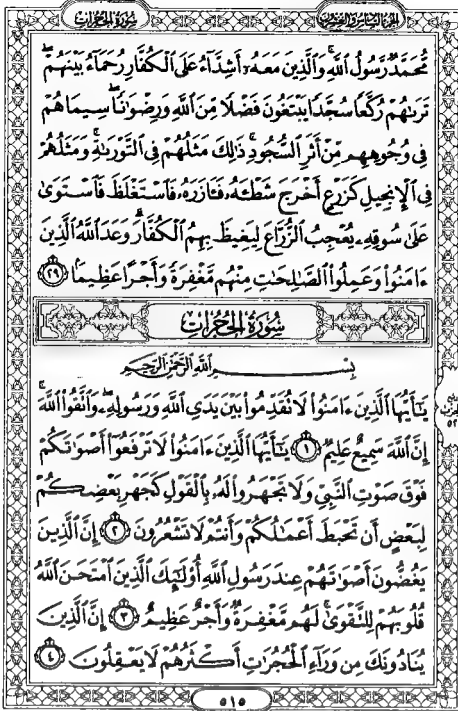 الجزء السادس والعشرون سورة الحجرات
مُّحَمَّدٌ رَّسُولُ ٱللَّهِ وَٱلَّذِينَ مَعَهُۥٓ أَشِدَّآءُ عَلَى ٱلْكُفَّارِ رُحَمَآءُ بَيْنَهُمْ
تَرَىٰهُمْ رُكَّعًا سُجَّدًا يَبْتَغُونَ فَضْلًا مِّنَ ٱللَّهِ وَرِضْوَٰنًا سِيمَاهُمْ
فِى وُجُوهِهِم مِّنْ أَثَرِ ٱلسُّجُودِ ذَٰلِكَ مَثَلُهُمْ فِى ٱلتَّوْرَىٰةِ وَمَثَلُهُمْ
فِى ٱلْإِنجِيلِ كَزَرْعٍ أَخْرَجَ شَطْـَٔهُۥ فَـَٔازَرَهُۥ فَٱسْتَغْلَظَ فَٱسْتَوَىٰ
عَلَىٰ سُوقِهِۦ يُعْجِبُ ٱلزُّرَّاعَ لِيَغِيظَ بِهِمُ ٱلْكُفَّارَ وَعَدَ ٱللَّهُ ٱلَّذِينَ
ءَامَنُوا۟ وَعَمِلُوا۟ ٱلصَّٰلِحَٰتِ مِنْهُم مَّغْفِرَةً وَأَجْرًا عَظِيمًۢا ٢٩
سُورَةُ الحُجُرَاتِ
بِسْمِ ٱللَّهِ ٱلرَّحْمَٰنِ ٱلرَّحِيمِ
يَٰٓأَيُّهَا ٱلَّذِينَ ءَامَنُوا۟ لَا تُقَدِّمُوا۟ بَيْنَ يَدَىِ ٱللَّهِ وَرَسُولِهِۦ وَٱتَّقُوا۟ ٱللَّهَ
إِنَّ ٱللَّهَ سَمِيعٌ عَلِيمٌ ١ يَٰٓأَيُّهَا ٱلَّذِينَ ءَامَنُوا۟ لَا تَرْفَعُوٓا۟ أَصْوَٰتَكُمْ
فَوْقَ صَوْتِ ٱلنَّبِىِّ وَلَا تَجْهَرُوا۟ لَهُۥ بِٱلْقَوْلِ كَجَهْرِ بَعْضِكُمْ
لِبَعْضٍ أَن تَحْبَطَ أَعْمَٰلُكُمْ وَأَنتُمْ لَا تَشْعُرُونَ ٢ إِنَّ ٱلَّذِينَ
يَغُضُّونَ أَصْوَٰتَهُمْ عِندَ رَسُولِ ٱللَّهِ أُو۟لَٰٓئِكَ ٱلَّذِينَ ٱمْتَحَنَ ٱللَّهُ
قُلُوبَهُمْ لِلتَّقْوَىٰ لَهُم مَّغْفِرَةٌ وَأَجْرٌ عَظِيمٌ ٣ إِنَّ ٱلَّذِينَ
يُنَادُونَكَ مِن وَرَآءِ ٱلْحُجُرَٰتِ أَكْثَرُهُمْ لَا يَعْقِلُونَ ٤
٥١٥